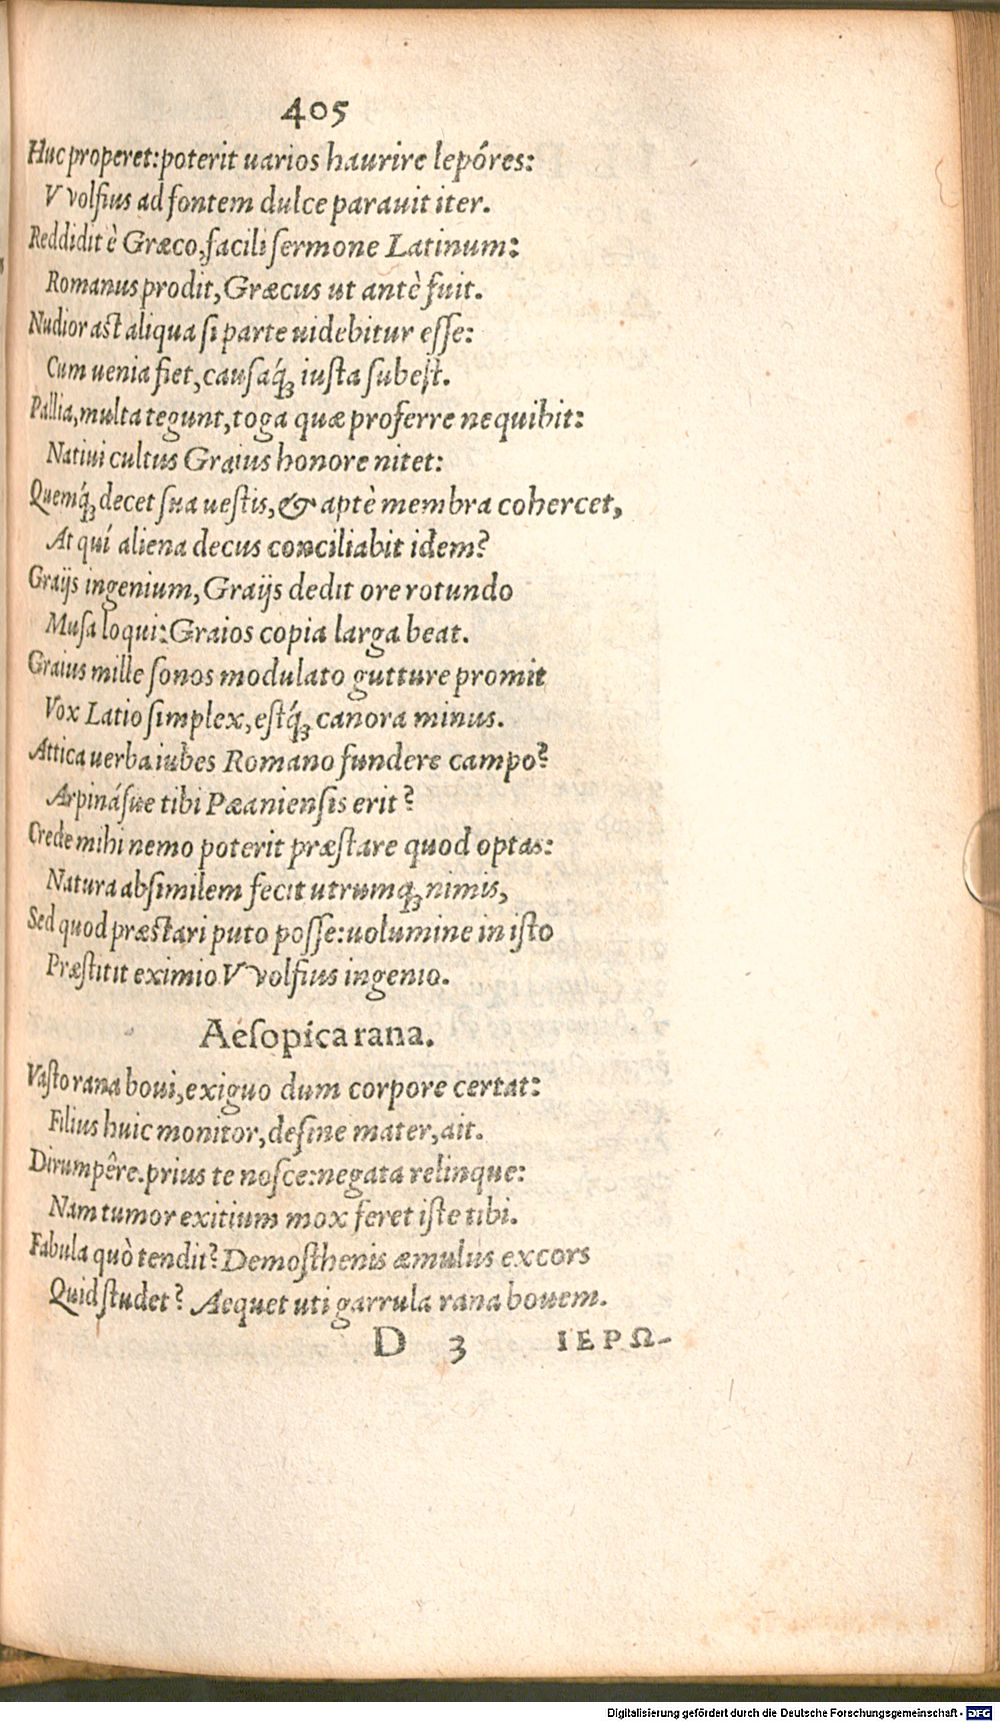 405
Huc properet: poterit uarios haurire lepóres:
VVolfius ad fontem dulce parauit iter.
Reddidit è Græco, facili sermone Latinum:
Romanus prodit, Græcus ut antè fuit.
Nudior ast aliqua si parte uidebitur esse:
Cum uenia fiet, causaq́; iusta subest.
Pallia, multa tegunt, toga quæ proferre nequibit:
Natiui cultus Graius honore nitet:
Quemq́; decet sua uestis, & aptè membra cohercet,
At quí aliena decus conciliabit idem?
Graijs ingenium, Graijs dedit ore rotundo
Musa loqui: Graios copia larga beat.
Graius mille sonos modulato gutture promit
Vox Latio simplex, estq́; canora minus.
Attica uerba iubes Romano fundere campo?
Arpinásue tibi Pæaniensis erit?
Crede mihi nemo poterit præstare quod optas:
Natura absimilem fecit utrumq; nimis,
Sed quod præstari puto posse: uolumine in isto
Præstitit eximio VVolfius ingenio.
Aesopica rana.
Vasto rana boui, exiguo dum corpore certat:
Filius huic monitor, desine mater, ait.
Dirumpêre. prius te nosce: negata relinque:
Nam tumor exitium mox feret iste tibi.
Fabula quò tendit? Demosthenis æmulus excors
Quid studet? Aequet uti garrula rana bouem.
D 3 ΙΕΡΩ-
Digitalisierung gefördert durch die Deutsche Forschungsgemeinschaft - DFG